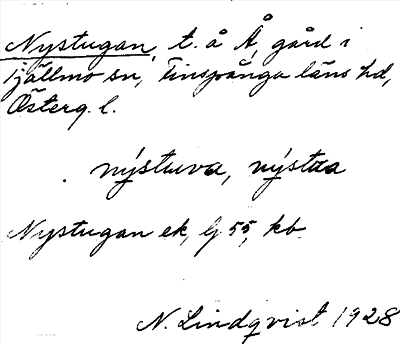 Nystugan, t. å Å, gård i
Tjällmo sn, Finspånga läns hd,
Österg. l.
nýstuva, nýstaa
Nystugan ek, Gj 55, kb
N. Lindqvist 1928